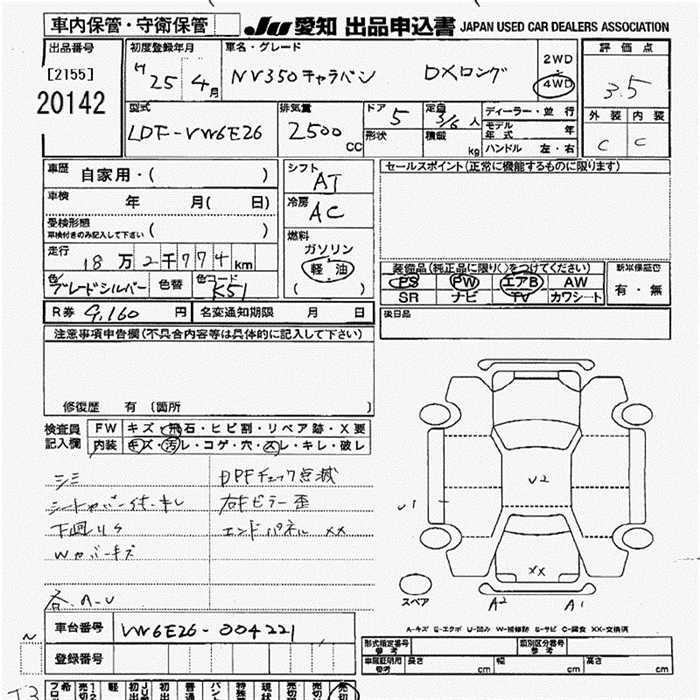 車内保管・守衛保管 JU 愛知 出品申込書 JAPAN USED CAR DEALERS ASSOCIATION
出品番号 初度登録年月 車名・グレード 評価点
[2155] H 25年 4月 NV350キャラバン DXロング 2WD 4WD 3.5
20142
型式 排気量 ドア 定員 ディーラー・並行 外装 内装
LDF-VW6E26 2500cc 5 3/6人 モデル年式 年
形状 積載 kg ハンドル 左・右 C C
車歴 自家用・( ) シフト AT セールスポイント(正常に機能するものに限ります)
車検 年 月( 日) 冷房 AC
受検形態
車検付きのみ記入して下さい ( ) 燃料
走行 18万2千774km ガソリン
軽油
( )
装備品(純正品に限り○をつけてください) 新車保証書
PS PW エアB AW 有・無
SR ナビ TV カワシート
色 ブレードシルバー 色替 色コード K51
後日品
R券 9,160円 名変通知期限 月 日
注意事項申告欄(不具合内容等は具体的に記入して下さい)
修復歴 有 (箇所 )
検査員記入欄 FW キズ・飛石・ヒビ割・リペア跡・X要
内装 キズ・汚レ・コゲ・穴・スレ・キレ・破レ
シミ DPFチェック点滅
シートカバー付・キレ 右Fピラー歪
下廻りサ エンドパネル XX
Wカバーキズ
各 A-U
U2
U1
XX
スペア A2 A1
車台番号 VW6E26-004221
A-キズ E-エクボ U-凹み W-補修跡 S-サビ C-腐食 XX-交換済
登録番号
型式指定番号 参考 類別区分番号 参考
車庫証明用 参考 長さ cm 幅 cm 高さ cm